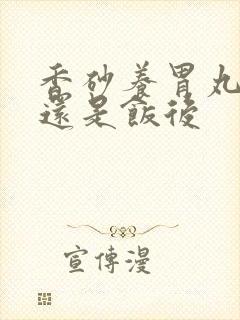 香砂養胃丸
還是飯後
宣傳漫